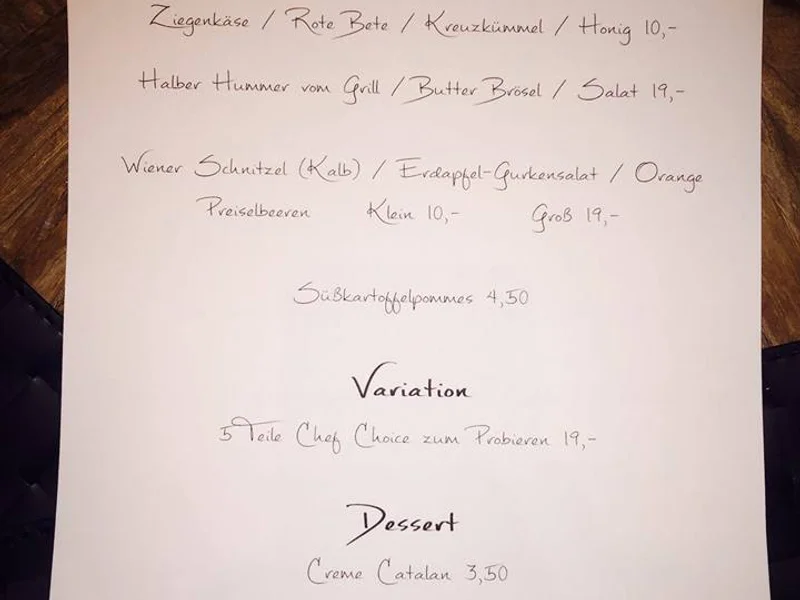 Ziegenkäse / Rote Bete / Kreuzkümmel / Honig 10,-
Halber Hummer vom Grill / Butter Brösel / Salat 19,-
Wiener Schnitzel (Kalb) / Erdapfel-Gurkensalat / Orange
Preiselbeeren Klein 10,- Groß 19,-
Süßkartoffelpommes 4,50
Variation
5 Teile Chef Choice zum Probieren 19,-
Dessert
Creme Catalan 3,50